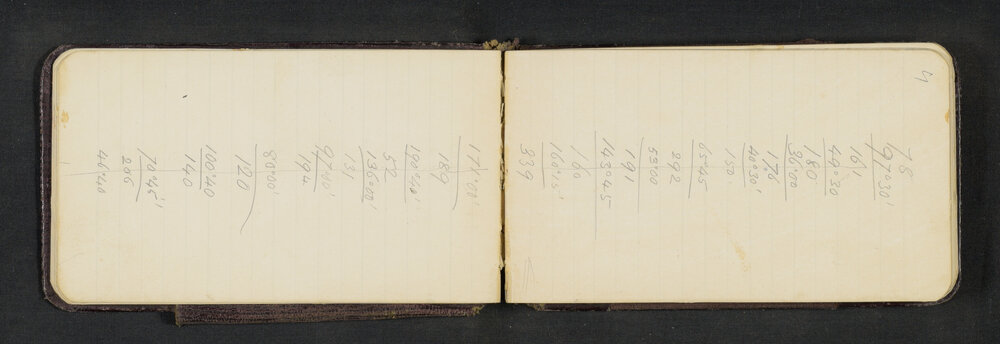 4
76
197°30'
161
49°20
180
36°00
176
40°30'
150
65°45
292
53°00
191
143°45
160
160°15'
339
171°00'
189
190°40'
52
136°00'
131
97°00'
194
80°00'
120
100°40
140
70°45'
206
46°40'